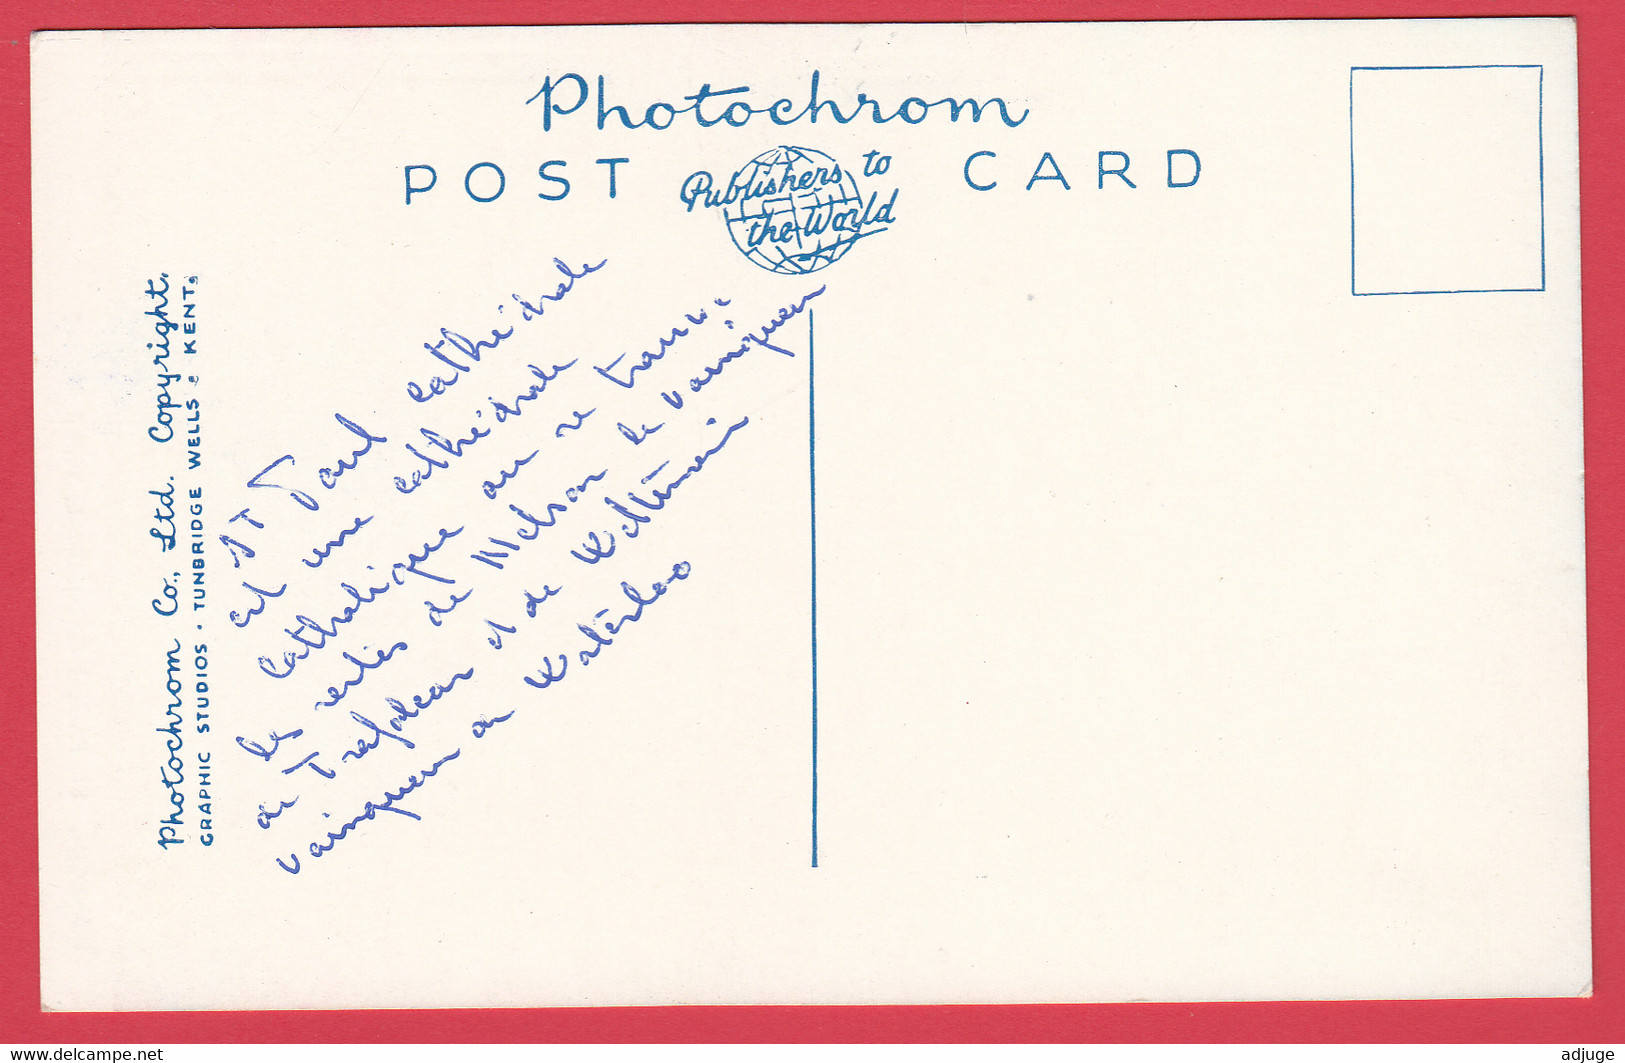 Photochrom
POST CARD
Publishers to
the World
Photochrom Co., Ltd. Copyright.
GRAPHIC STUDIOS · TUNBRIDGE WELLS · KENT.
St Paul cathédrale
est une cathédrale
Catholique ou se trouve
les restes de Nelson le vainqueur
de Trafalgar et de
vainqueur de Waterloo
www.delcampe.net
adjuge